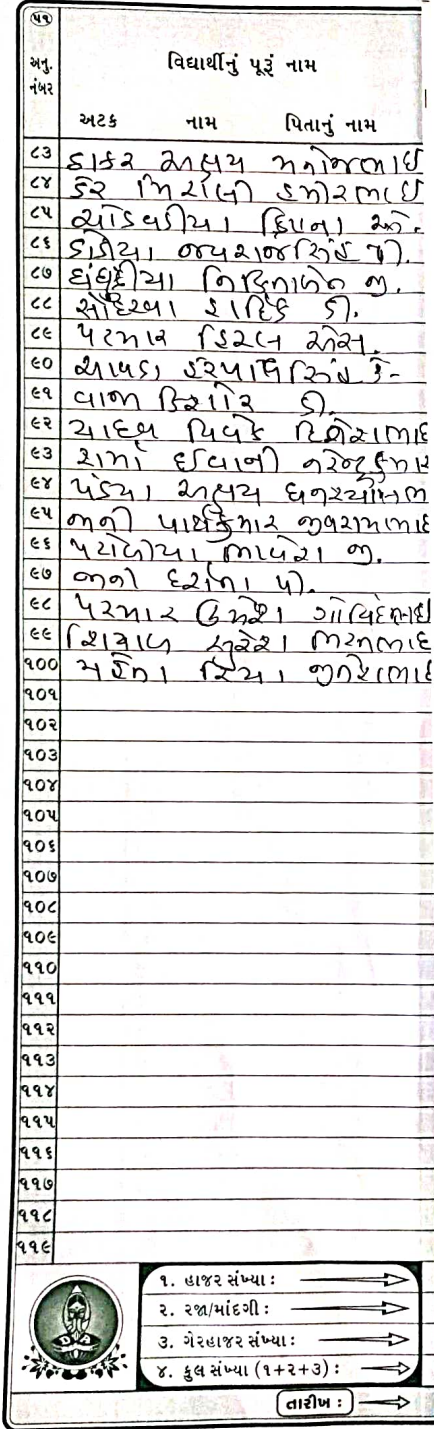 ૫૧
અનુ. નંબર
વિદ્યાર્થીનું પૂરું નામ
અટક નામ પિતાનું નામ
૮૩ ડાકર અક્ષય મનોજભાઈ
૮૪ કેર મિરાલી હમીરભાઈ
૮૫ ચોડવડીયા ક્રિપના એ.
૮૬ ડોડીયા જયરાજસિંહ પી.
૮૭ ધંધુકીયા જી.
૮૮ હાર્દિક ડી.
૮૯ પરમાર હિરલ એસ.
૯૦ ચાવડા હરપાલસિંહ કે.
૯૧ વાજા કિશોર ડી.
૯૨ યાદવ વિવેક દિનેશભાઈ
૯૩ શર્મા ઈવાની નરેન્દ્રકુમાર
૯૪ પંડયા અક્ષય
૯૫ જાની પાર્થકુમાર જીવરામભાઈ
૯૬ પટોળીયા ભાવેશ જી.
૯૭ જાની દર્શના પી.
૯૮ પરમાર ઉમેશ ગોવિંદભાઈ
૯૯ શિયાળ સુરેશ ભરતભાઈ
૧૦૦ મહેતા રિયા જીતેશભાઈ
૧૦૧
૧૦૨
૧૦૩
૧૦૪
૧૦૫
૧૦૬
૧૦૭
૧૦૮
૧૦૯
૧૧૦
૧૧૧
૧૧૨
૧૧૩
૧૧૪
૧૧૫
૧૧૬
૧૧૭
૧૧૮
૧૧૯
૧. હાજર સંખ્યા :
૨. રજા/માંદગી :
૩. ગેરહાજર સંખ્યા :
૪. કુલ સંખ્યા (૧+૨+૩) :
તારીખ :